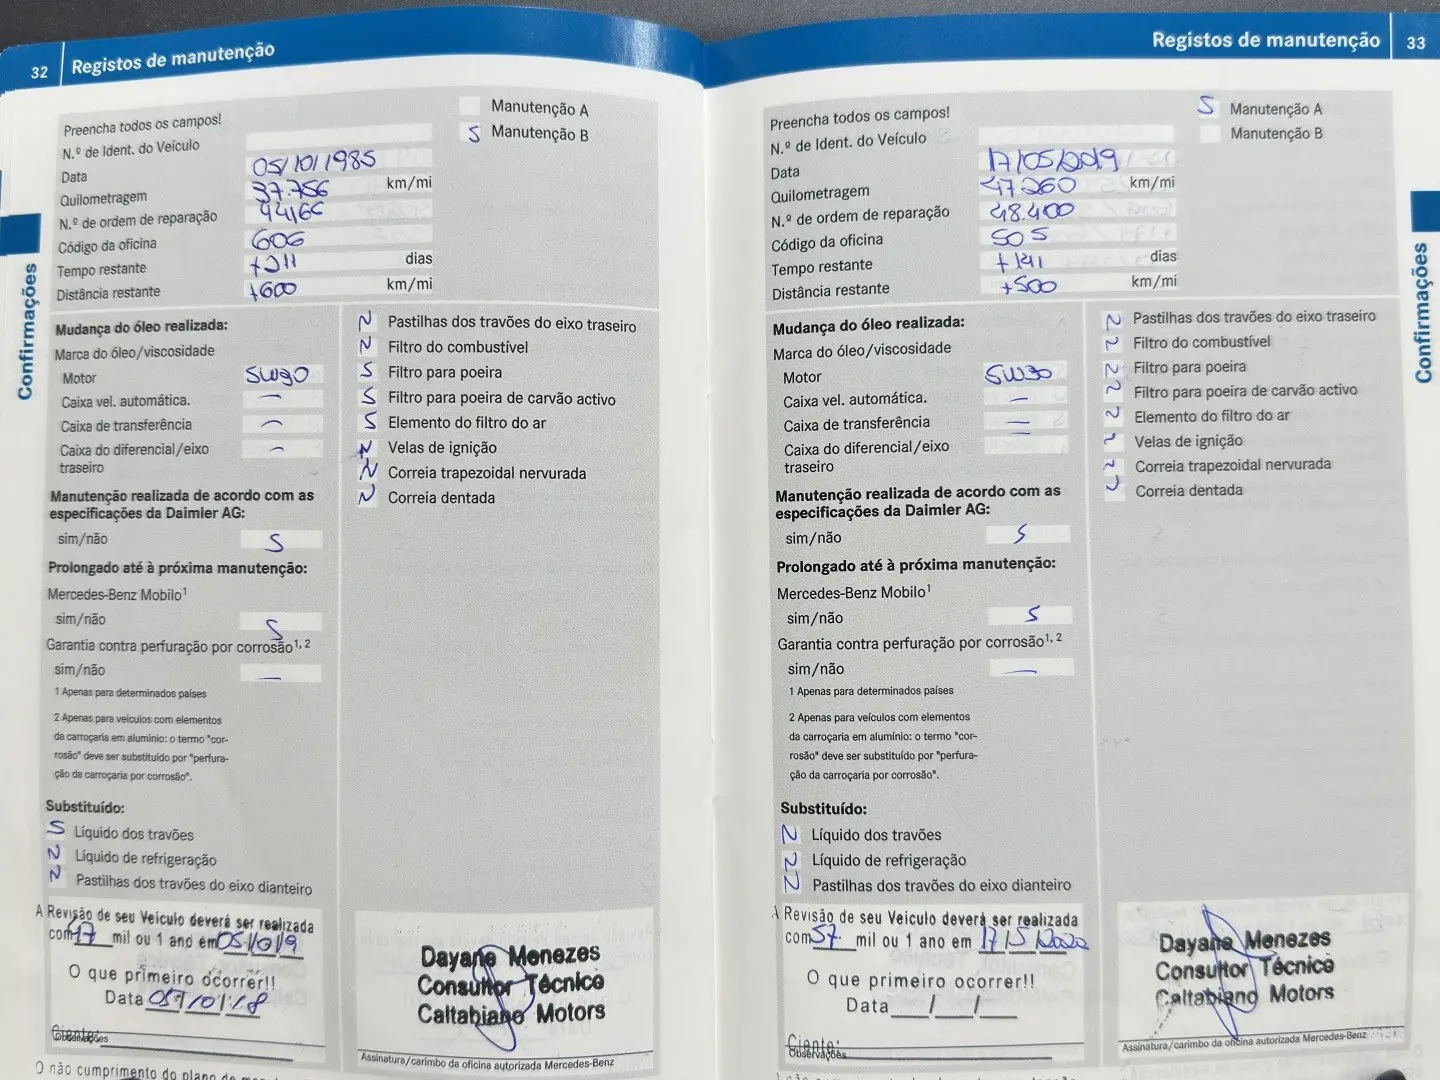 32 Registos de manutenção
Preencha todos os campos!
Manutenção A
S Manutenção B
N.º de Ident. do Veículo
Data 05/10/1985
Quilometragem 37.756 km/mi
N.º de ordem de reparação 44166
Código da oficina 606
Tempo restante +211 dias
Distância restante +600 km/mi
Confirmações
Mudança do óleo realizada:
Marca do óleo/viscosidade
Motor 5W30
Caixa vel. automática. —
Caixa de transferência —
Caixa do diferencial/eixo —
traseiro
Manutenção realizada de acordo com as
especificações da Daimler AG:
sim/não S
Prolongado até à próxima manutenção:
Mercedes-Benz Mobilo¹
sim/não S
Garantia contra perfuração por corrosão¹, ²
sim/não —
1 Apenas para determinados países
2 Apenas para veículos com elementos
da carroçaria em alumínio: o termo "cor-
rosão" deve ser substituído por "perfura-
ção da carroçaria por corrosão".
Substituído:
S Líquido dos travões
N Líquido de refrigeração
N Pastilhas dos travões do eixo dianteiro
N Pastilhas dos travões do eixo traseiro
N Filtro do combustível
S Filtro para poeira
S Filtro para poeira de carvão activo
S Elemento do filtro do ar
N Velas de ignição
N Correia trapezoidal nervurada
N Correia dentada
A Revisão de seu Veículo deverá ser realizada
com 47 mil ou 1 ano em
O que primeiro ocorrer!!
Data
Ciente:
Observações
Dayane Menezes
Consultor Técnico
Caltabiano Motors
Assinatura/carimbo da oficina autorizada Mercedes-Benz
O não cumprimento do plano de
Registos de manutenção 33
Preencha todos os campos!
S Manutenção A
Manutenção B
N.º de Ident. do Veículo
Data 17/05/2019
Quilometragem 47260 km/mi
N.º de ordem de reparação 48.400
Código da oficina 505
Tempo restante +141 dias
Distância restante +500 km/mi
Confirmações
Mudança do óleo realizada:
Marca do óleo/viscosidade
Motor 5W30
Caixa vel. automática. —
Caixa de transferência —
Caixa do diferencial/eixo —
traseiro
Manutenção realizada de acordo com as
especificações da Daimler AG:
sim/não S
Prolongado até à próxima manutenção:
Mercedes-Benz Mobilo¹
sim/não S
Garantia contra perfuração por corrosão¹, ²
sim/não —
1 Apenas para determinados países
2 Apenas para veículos com elementos
da carroçaria em alumínio: o termo "cor-
rosão" deve ser substituído por "perfura-
ção da carroçaria por corrosão".
Substituído:
N Líquido dos travões
N Líquido de refrigeração
N Pastilhas dos travões do eixo dianteiro
N Pastilhas dos travões do eixo traseiro
N Filtro do combustível
N Filtro para poeira
N Filtro para poeira de carvão activo
N Elemento do filtro do ar
N Velas de ignição
N Correia trapezoidal nervurada
N Correia dentada
A Revisão de seu Veículo deverá ser realizada
com 57. mil ou 1 ano em 17/5/2020
O que primeiro ocorrer!!
Data__/__/__
Ciente:
Observações
Dayane Menezes
Consultor Técnico
Caltabiano Motors
Assinatura/carimbo da oficina autorizada Mercedes-Benz